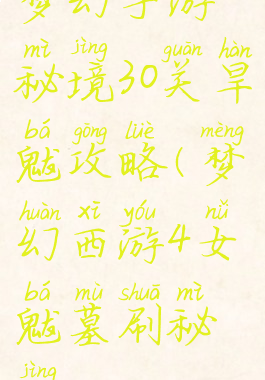 梦幻手游
mì jìng guān hàn
秘境30关旱
bá gōng lüè mèng
魃攻略(梦
huàn xī yóu nǚ
幻西游4女
bá mù shuā mì
魃墓刷秘
jìng